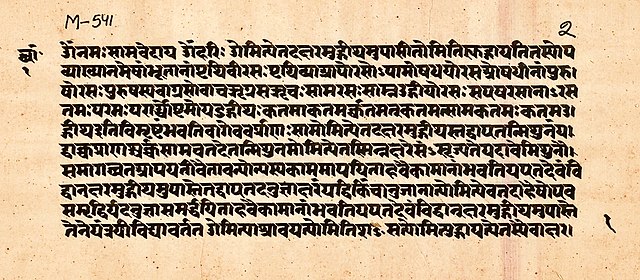 M-541
2
ॐनमःसामवेदाय ॐहरिः ओमित्येतदक्षरमुद्गीथमुपासीतोमितिह्युद्गायतितस्योप
छां
१
व्याख्यानमेषांभूतानांपृथिवीरसःपृथिव्याआपोरसोऽपामोषधयोरसओषधीनांपुरु
षोरसःपुरुषस्यवाग्रसोवाचऋग्रसऋचःसामरसःसाम्नउद्गीथोरसः सएषरसानाऽरस
तमःपरमःपरार्ध्योष्टमोयउद्गीथःकतमाकतमर्क्कतमत्कतमत्सामकतमःकतमउ
द्गीथइतिविमृष्टंभवतिवागेवर्क्प्राणःसामोमित्येतदक्षरमुद्गीथस्तद्वाएतन्मिथुनंय
द्वाक्चप्राणश्चर्क्चसामचतदेतन्मिथुनमोमित्येतस्मिन्नक्षरेसऽसृज्यतेयदावैमिथुनौ
समागच्छतआपयतोवैतावन्योन्यस्यकाममापयिताहवैकामानांभवतियएतदेवंवि
द्वानक्षरमुद्गीथमुपास्तेतद्वाएतदनुज्ञाक्षरंयद्धिकिंचानुजानात्योमित्येवतदाहैषोएव
समृद्धिर्यदनुज्ञासमर्द्धयिताहवैकामानांभवतियएतदेवंविद्वानक्षरमुद्गीथमुपास्ते
तेनेयंत्रयीविद्यावर्तत ओमित्याश्रावयत्योमितिशऽसत्योमित्युद्गायत्येतस्यैवाक्षर
१